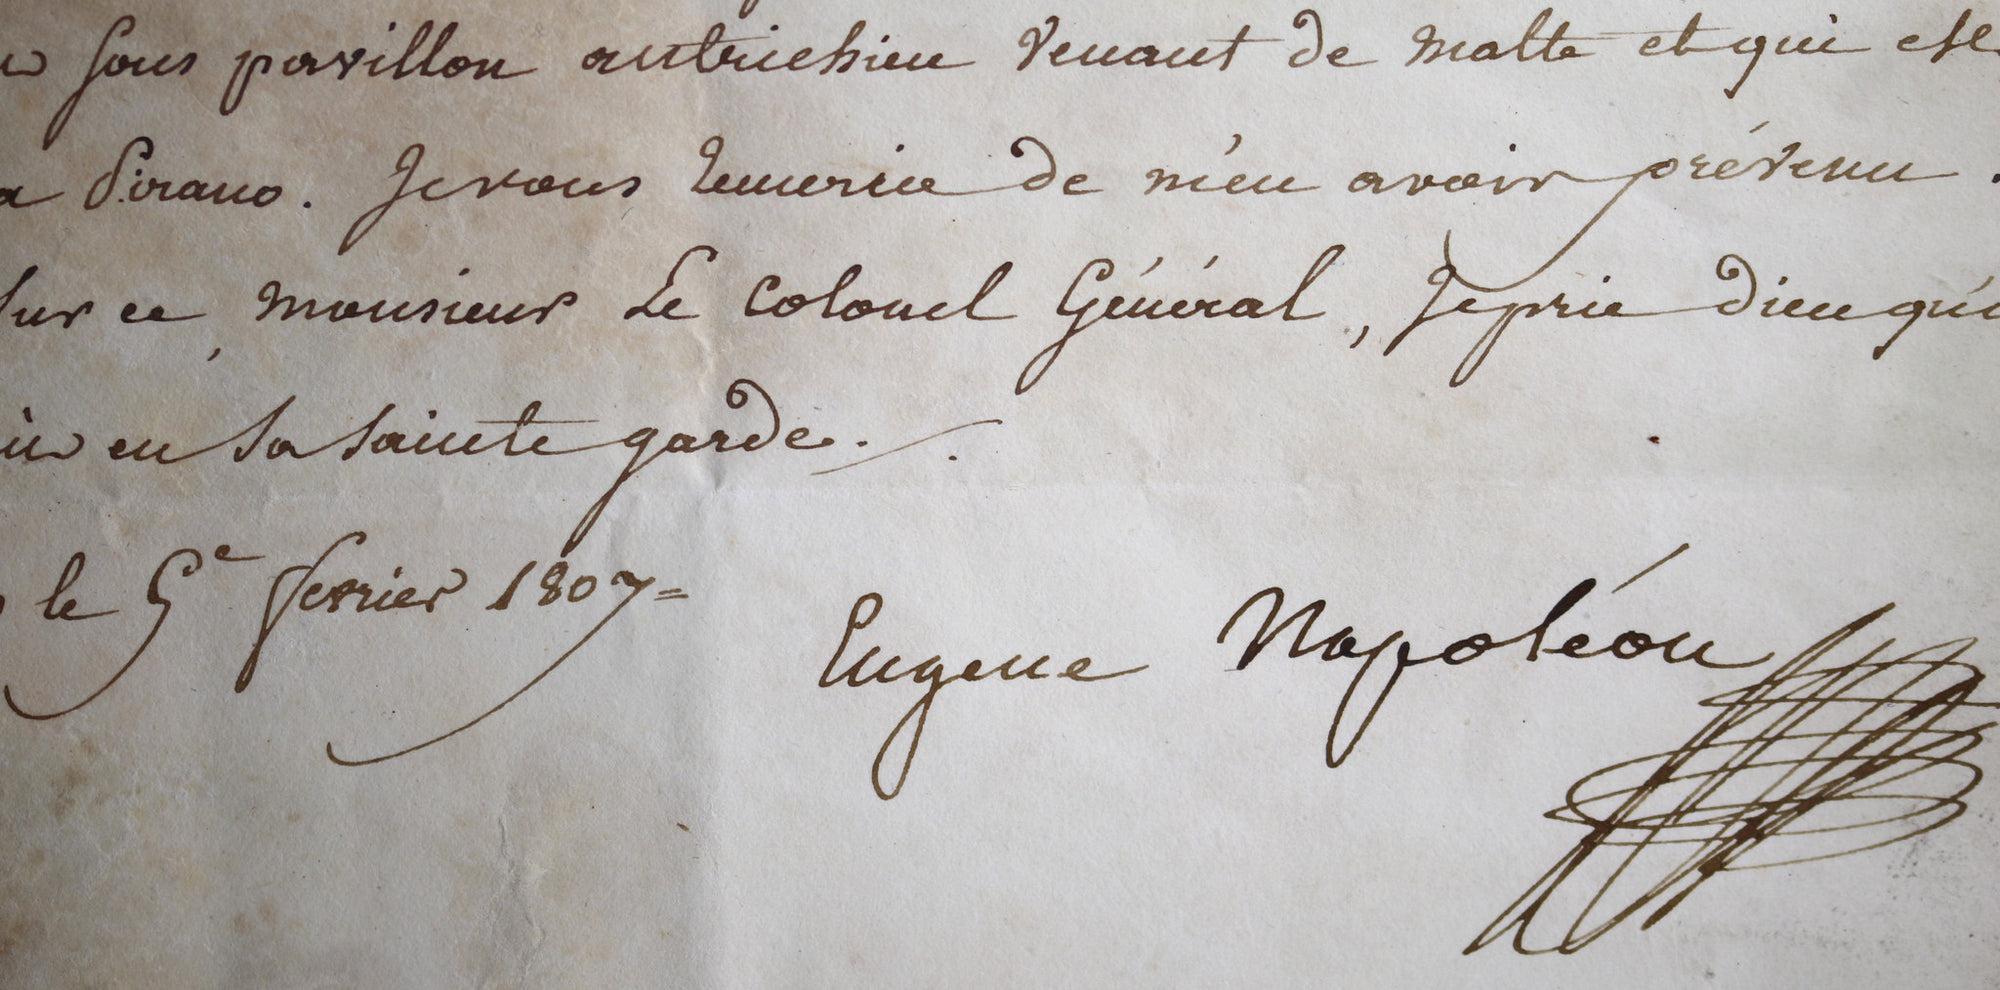 sous pavillon autrichien venant de Malte et qui est
a Pirano. Je vous remercie de m'en avoir prévenu.
sur ce, monsieur Le Colonel Général, Je prie dieu qu'il
en sa sainte garde.
le 5e fevrier 1807=
Eugene Napoléon